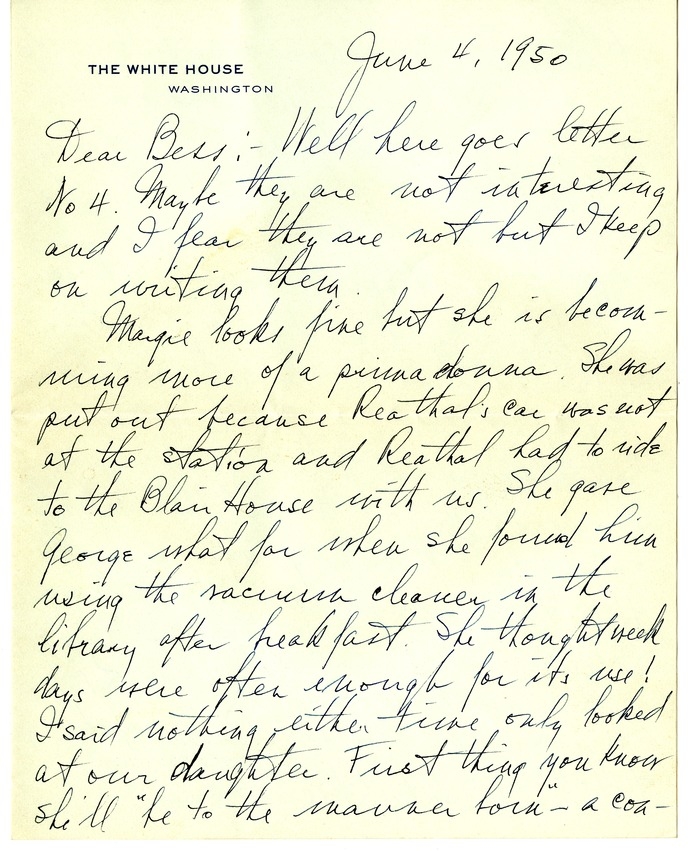 June 4, 1950
THE WHITE HOUSE
WASHINGTON
Dear Bess:- Well here goes letter
No 4. Maybe they are not interesting
and I fear they are not but I keep
on writing them.
Margie looks fine but she is becom-
ming more of a prima donna. She was
put out because Reathal's car was not
at the station and Reathal had to ride
to the Blair House with us. She gave
George what for when she found him
using the vacuum cleaner in the
library after breakfast. She thought week
days were often enough for its use!
I said nothing either time only looked
at our daughter. First thing you know
she'll "be to the manner born" - a con-